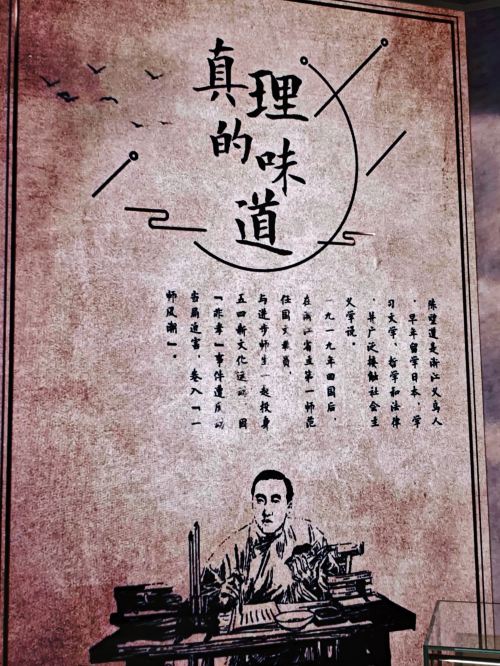 真理的味道
陈望道是浙江义乌人
，早年留学日本，学
习文学、哲学和法律
，并广泛接触社会主
义学说。
一九一九年回国后，
在浙江省立第一师范
任国文教员，
与进步师生一起投身
五四新文化运动。因
“非孝”事件遭反动
当局迫害，卷入“一
师风潮”。